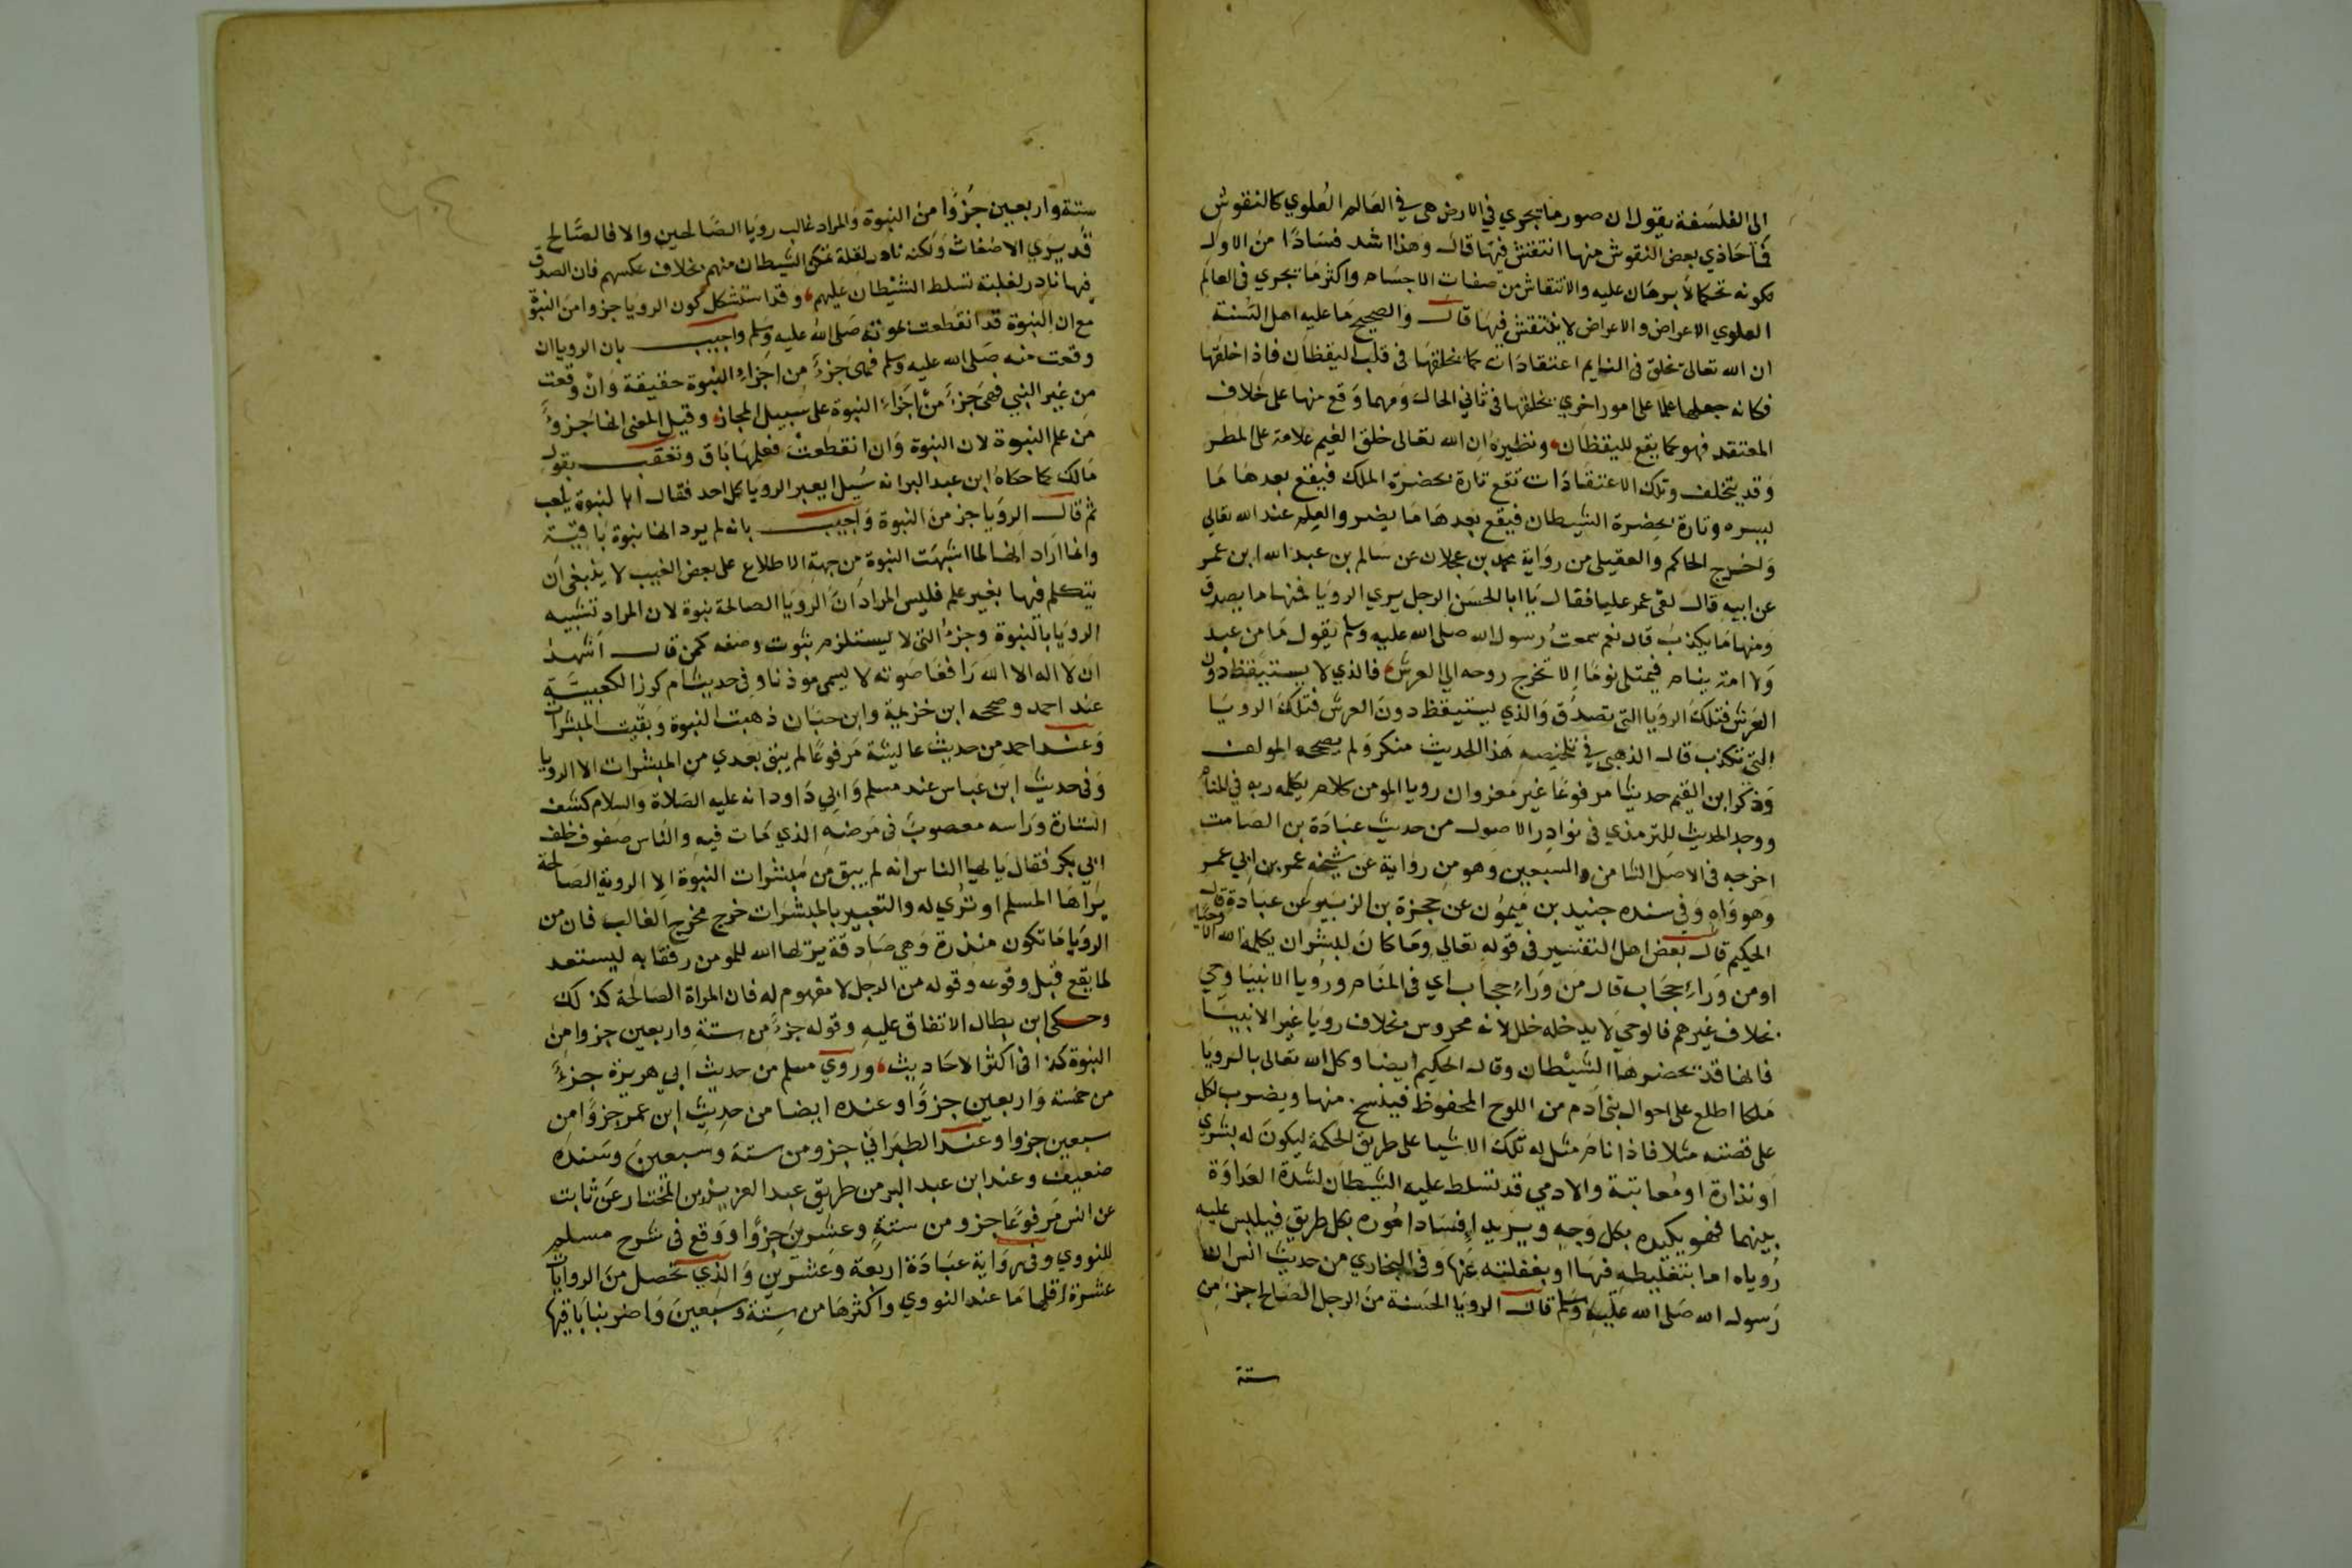 الى الفلسفة يقول ان صور ما تجري في الارض هى في العالم العلوي كالنقوش
فما حاذي بعض النقوش منها انتقش فيها قال وهذا اشد فسادا من الاول
لكونه تحكما لا برهان عليه والانتقاش من صفات الاجسام واكثر ما تجري في العالم
العلوي الاعراض والاعراض لا ينتقش فيها قال والصحيح ما عليه اهل السنة
ان الله تعالى يخلق فى النايم اعتقادات كما يخلقها فى قلب اليقظان فاذا خلقها
فكانه جعلها علما على امور اخري يخلقها فى ثاني الحال ومهما وقع منها على خلاف
المعتقد فهو كما يقع لليقظان ونظيره ان الله تعالى خلق الغيم علامة على المطر
وقد يتخلف وتلك الاعتقادات تقع تارة بحضرة الملك فيقع بعدها ما
يسره وتارة بحضرة الشيطان فيقع بعدها ما يضر والعلم عند الله تعالي
واخرج الحاكم والعقيلى من رواية محمد بن عجلان عن سالم بن عبد الله ابن عمر
عن ابيه قال لقى عمر عليا فقال يا ابا الحسن الرجل يري الرويا فمنها ما يصدق
ومنها ما يكذب قال نعم سمعت رسول الله صلى الله عليه وسلم يقول ما من عبد
ولا امة ينام فيمتلى نوما الا تخرج روحه الي العرش فالذي لا يستيقظ دون
العرش فتلك الرويا التى تصدق والذي يستيقظ دون العرش فتلك الرويا
التى تكذب قال الذهبى في تلخيصه هذا الحديث منكر ولم يصححه المولف
وذكر ابن القيم حديثا مرفوعا غير معزو ان رويا المومن كلام يكلمه ربه في المنام
ووجد الحديث للترمذي فى نوادر الاصول من حديث عبادة بن الصامت
اخرجه فى الاصل الثامن والسبعين وهو من رواية عن شيخه عمر بن ابي عمر
وهو واه وفي سنده جنيد بن ميمون عن حمزة بن الزبير عن عبادة قال
الحكيم قال بعض اهل التفسير فى قوله تعالي وما كان لبشر ان يكلمه الله الا وحيا
او من وراء حجاب قال من وراء حجاب اي فى المنام ورويا الانبيا وحي
بخلاف غيرهم فالوحي لا يدخله خلل لانه محروس بخلاف رويا غير الانبيا
فانها قد يحضرها الشيطان وقال الحكيم ايضا وكل الله تعالى بالرويا
ملكا اطلع على احوال بنى ادم من اللوح المحفوظ فينسخ منها ويضرب لكل
على قصته مثلا فاذا نام مثل له تلك الاشيا على طريق الحكمة ليكون له بشري
او نذارة او معاتبة والادمي قد تسلط عليه الشيطان لشدة العداوة
بينهما فهو يكيده بكل وجه ويريد افساد اموره بكل طريق فيلبس عليه
روياه اما بتغليطه فيها او بغفلته عنها وفى البخاري من حديث انس ان
رسول الله صلى الله عليه وسلم قال الرويا الحسنة من الرجل الصالح جزء من
ستة
ستة واربعين جزوا من النبوة والمراد غالب رويا الصالحين والا فالصالح
قد يري الاضغاث ولكنه نادر لقلة تمكن الشيطان منهم بخلاف عكسهم فان الصدق
فيها نادر لغلبة تسلط الشيطان عليهم وقد استشكل كون الرويا جزوا من النبوة
مع ان النبوة قد انقطعت بموته صلى الله عليه وسلم واجيب بان الرويا ان
وقعت منه صلى الله عليه وسلم فهى جزء من اجزاء النبوة حقيقة وان وقعت
من غير النبي فهى جزء من اجزاء النبوة على سبيل المجاز وقيل المعنى انها جزو
من علم النبوة لان النبوة وان انقطعت فعلمها باق وتعقب بقول
مالك كما حكاه ابن عبد البر انه سيل ايعبر الرويا كل احد فقال ابالنبوة يلعب
ثم قال الرويا جز من النبوة واجيب بانه لم يرد انها نبوة باقية
وانما اراد انها لما اشبهت النبوة من جهة الاطلاع على بعض الغيب لا ينبغى ان
يتكلم فيها بغير علم فليس المراد ان الرويا الصالحة نبوة لان المراد تشبيه
الرويا بالنبوة وجزء التى لا يستلزم ثبوت وصفه كمن قال اشهد
ان لا اله الا الله رافعا صوته لا يسمى موذنا وفى حديث ام كرز الكعبية
عند احمد وصححه ابن خزيمة وابن حبان ذهبت النبوة وبقيت المبشرات
وعند احمد من حديث عايشة مرفوعا لم يبق بعدي من المبشرات الا الرويا
وفى حديث ابن عباس عند مسلم وابي داود انه عليه الصلاة والسلام كشف
الستارة وراسه معصوب فى مرضه الذي مات فيه والناس صفوف خلف
ابي بكر فقال يا ايها الناس انه لم يبق من مبشرات النبوة الا الروية الصالحة
يراها المسلم او تري له والتعبير بالمبشرات خرج مخرج الغالب فان من
الرويا ما تكون منذرة وهي صادقة يريها الله للمومن رفقا به ليستعد
لما يقع قبل وقوعه وقوله من الرجل لا مفهوم له فان المراة الصالحة كذلك
وحكى ابن بطال الاتفاق عليه وقوله جزء من ستة واربعين جزوا من
النبوة كذا فى اكثر الاحاديث وروي مسلم من حديث ابي هريرة جزء
من خمسة واربعين جزوا وعنده ايضا من حديث ابن عمر جزوا من
سبعين جزوا وعند الطبراني جزو من ستة وسبعين وسنده
ضعيف وعند ابن عبد البر من طريق عبد العزيز بن المختار عن ثابت
عن انس مرفوعا جزو من ستة وعشرين جزوا ووقع فى شرح مسلم
للنووي وفى رواية عبادة اربعة وعشرين والذي تحصل من الروايات
عشرة اقلها ما عند النووي واكثرها من ستة وسبعين واضربنا باقيها